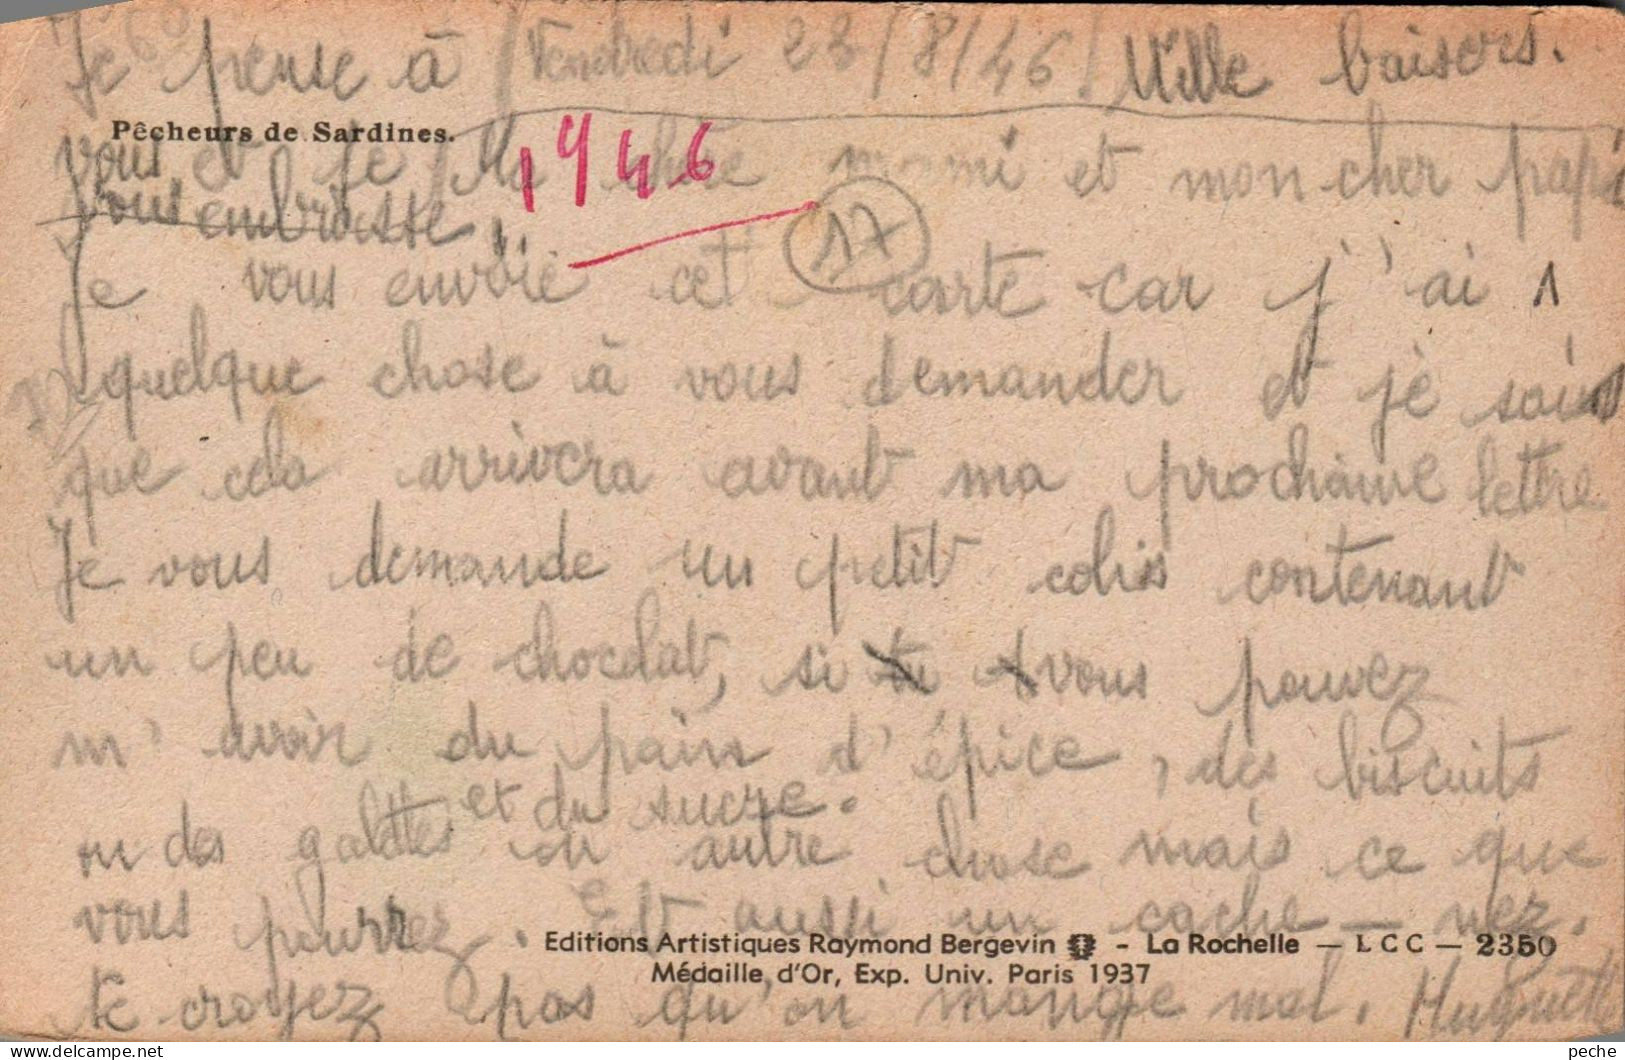 Je pense à
vous et je
vous embrasse.
Vendredi 23/8/46
Mille baisers.
Pêcheurs de Sardines.
1946
17
Ma chère mami et mon cher papi
Je vous envoie cet carte car j'ai 1
quelque chose à vous demander et je sais
que cela arrivera avant ma prochaine lettre
Je vous demande un petit colis contenant
un peu de chocolat, si tu vous pouvez
m'avoir du pain d'épice, des biscuits
et du sucre.
ou des galettes ou autre chose mais ce que
vous pourrez. Et aussi un cache-nez.
Ne croyez pas qu'on mange mal. Huguette
Editions Artistiques Raymond Bergevin - La Rochelle — L C C — 2350
Médaille d'Or, Exp. Univ. Paris 1937
peche